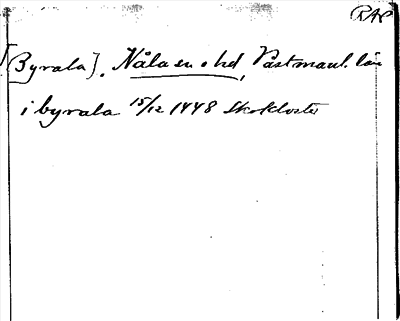 RAP
[Byrala]. Nåla en. o hd, Västmanl. län
i byrala 15/12 1448 Skokloster